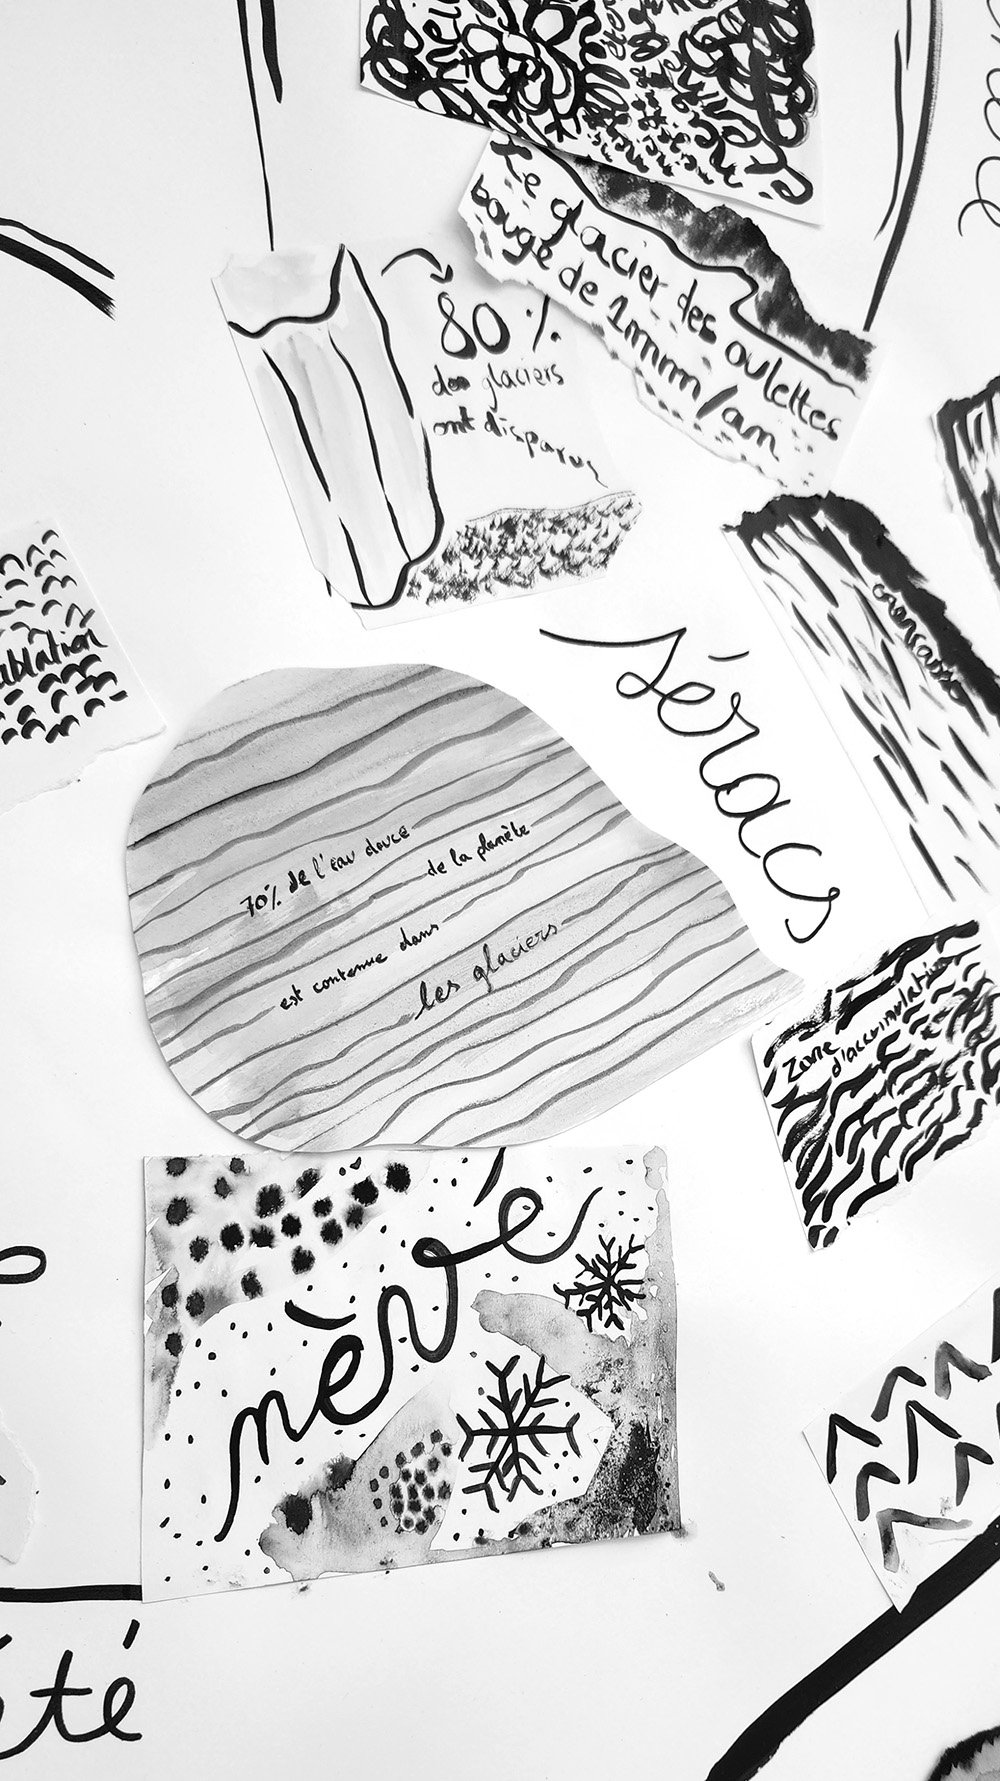 Le glacier des oulettes
bouge de 1mmm/an
80 %
des glaciers
ont disparus
crevasse
ablation
séracs
70% de l'eau douce
de la planète
est contenue dans
les glaciers
Zone
d'accumulation
nèvé
été